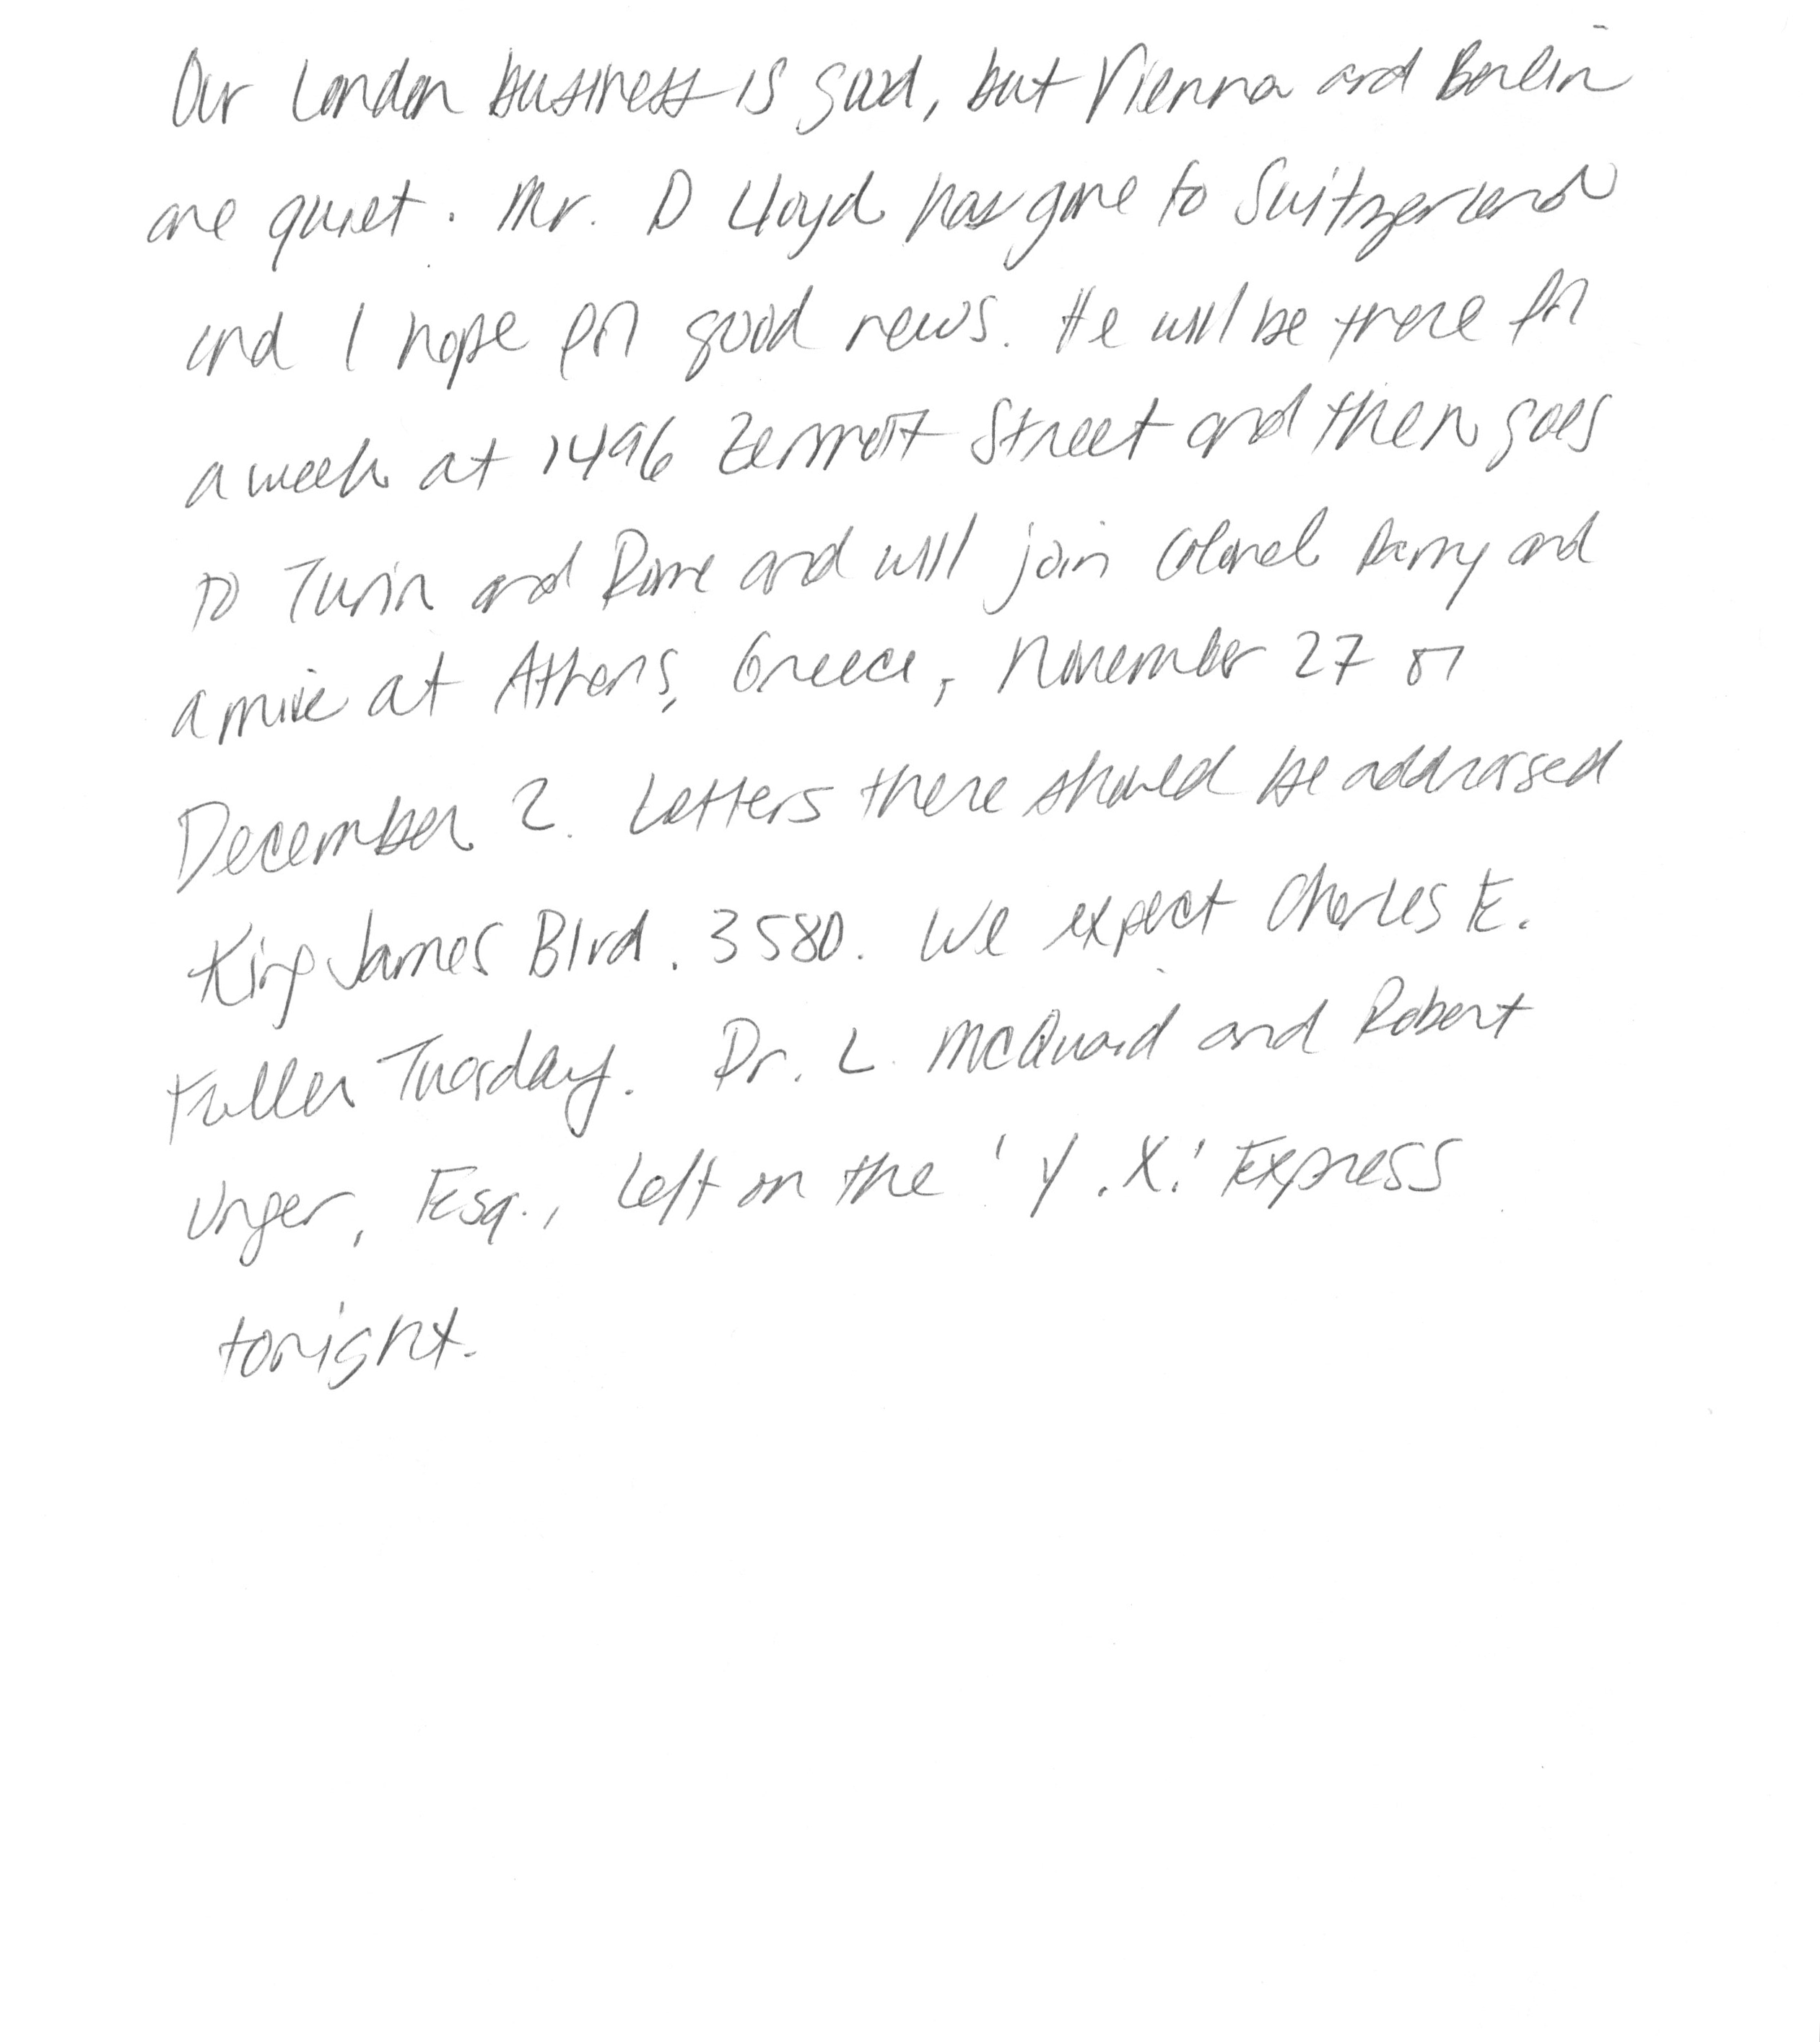 Our London business is good, but Vienna and Berlin
are quiet. Mr. D Lloyd has gone to Switzerland
and I hope for good news. He will be there for
a week at 1496 Zermott Street and then goes
to Turin and Rome and will join Colonel Parry and
arrive at Athens, Greece, November 27 or
December 2. Letters there should be addressed
King James Blvd. 3580. We expect Charles E.
Fuller Tuesday. Dr. L. McQuaid and Robert
Unger, Esq., left on the 'Y.X.' Express
tonight.